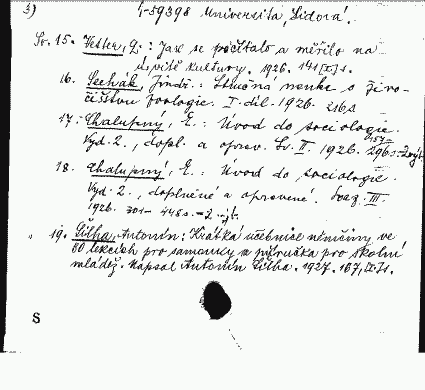 3) I-59398 Universita, Lidová.
Sv. 15. Vetter, Q.: Jak se počítalo a měřilo na
úsvitě kultury. 1926. 141 [I] s.
16. Sechák, Jindř.: Stručná nauka o živo-
čišstvu Zoologie. I. díl. 1926. 216 s
17. Chalupný, E.: Úvod do sociologie.
Vyd. 2., dopl. a oprav. Sv. II. 1926. 157-296 s.
18. Chalupný, E.: Úvod do sociologie.
Vyd. 2., doplněné a opravené. Svaz. III.
1926. 301-448 s. = 2. výt.
19. Šilha, Antonín: Krátká učebnice němčiny ve
80 lekcích pro samouky a příručka pro školní
mládež. Napsal Antonín Šilha. 1927. 167, [I] s.
S